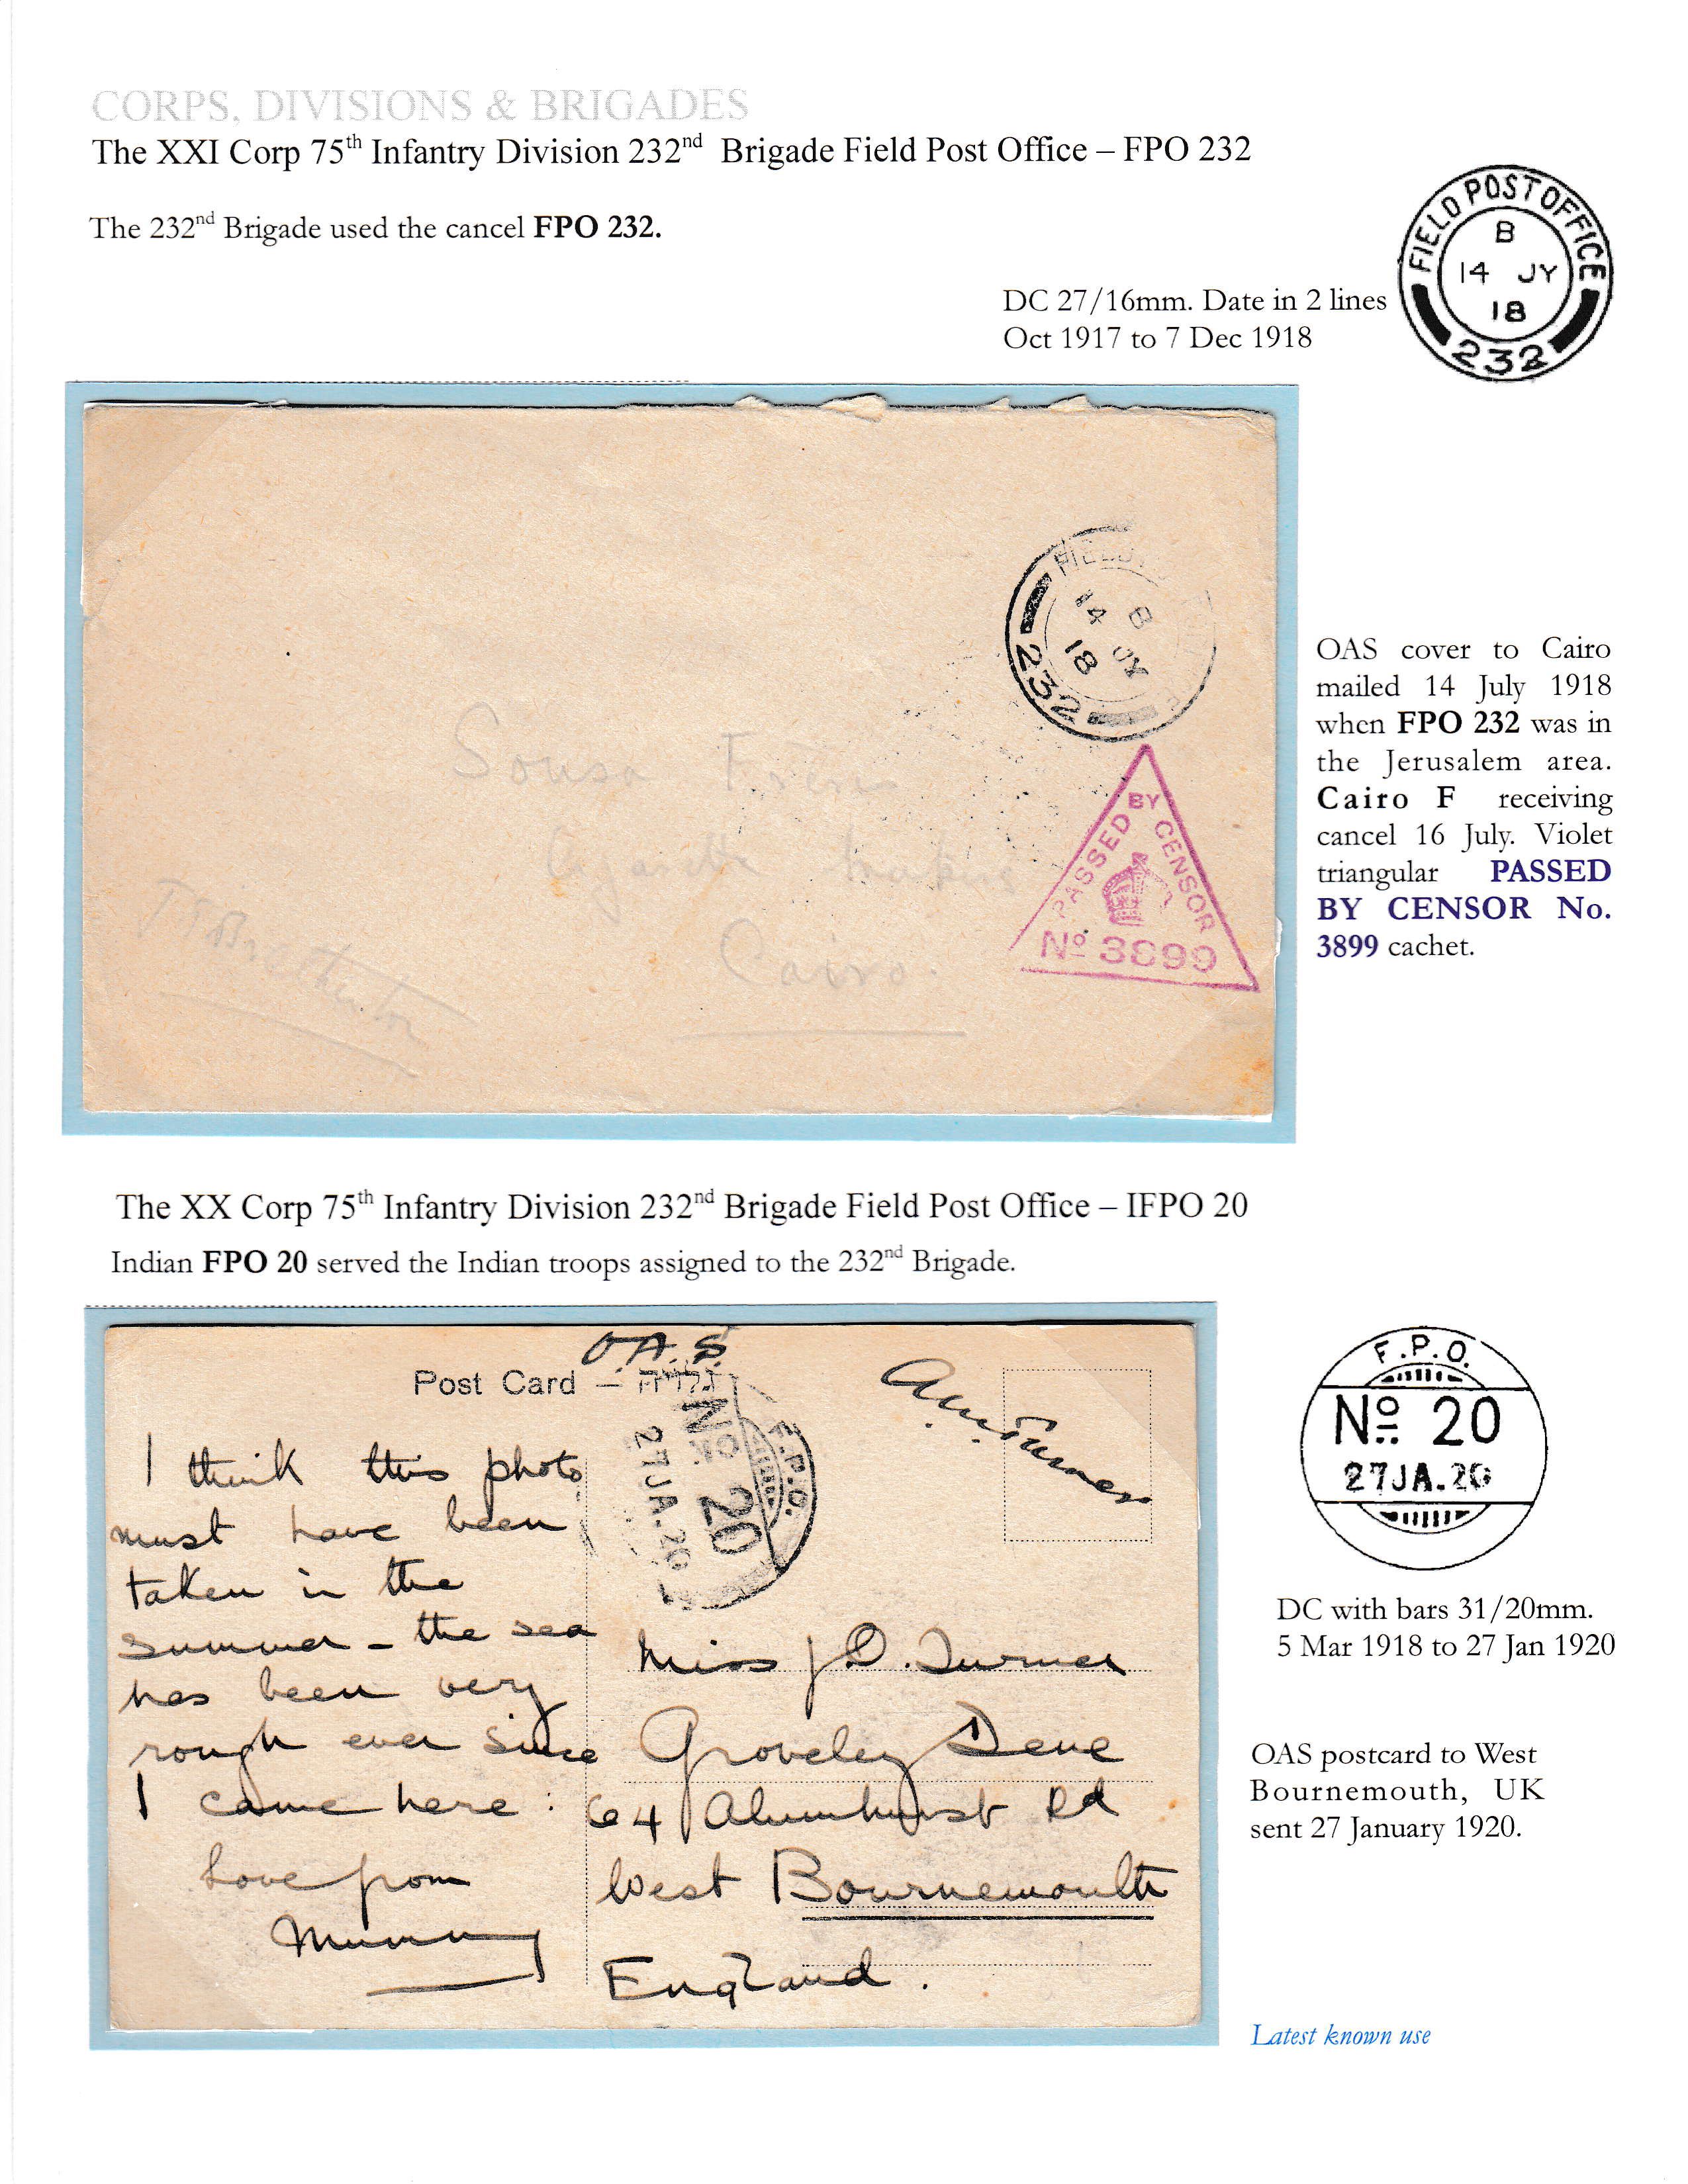 CORPS, DIVISIONS & BRIGADES
The XXI Corp 75th Infantry Division 232nd Brigade Field Post Office – FPO 232
The 232nd Brigade used the cancel FPO 232.
DC 27/16mm. Date in 2 lines
Oct 1917 to 7 Dec 1918
FIELD POST OFFICE
B
14 JY
18
232
FIELD
B
14 JY
18
232
Sousa Freres
Cigarette makers
Cairo.
PASSED BY CENSOR
No 3899
OAS cover to Cairo
mailed 14 July 1918
when FPO 232 was in
the Jerusalem area.
Cairo F receiving
cancel 16 July. Violet
triangular PASSED
BY CENSOR No.
3899 cachet.
The XX Corp 75th Infantry Division 232nd Brigade Field Post Office – IFPO 20
Indian FPO 20 served the Indian troops assigned to the 232nd Brigade.
O.A.S
Post Card – גלויה
F.P.O.
No 20
27JA.20
I think this photo
must have been
taken in the
summer – the sea
has been very
rough ever since
I came here :
Love from
Mummy
Miss J D. Turner
Groveley Dene
64 Alumhurst Rd
West Bournemouth
England.
F.P.O.
No 20
27JA.20
DC with bars 31/20mm.
5 Mar 1918 to 27 Jan 1920
OAS postcard to West
Bournemouth, UK
sent 27 January 1920.
Latest known use